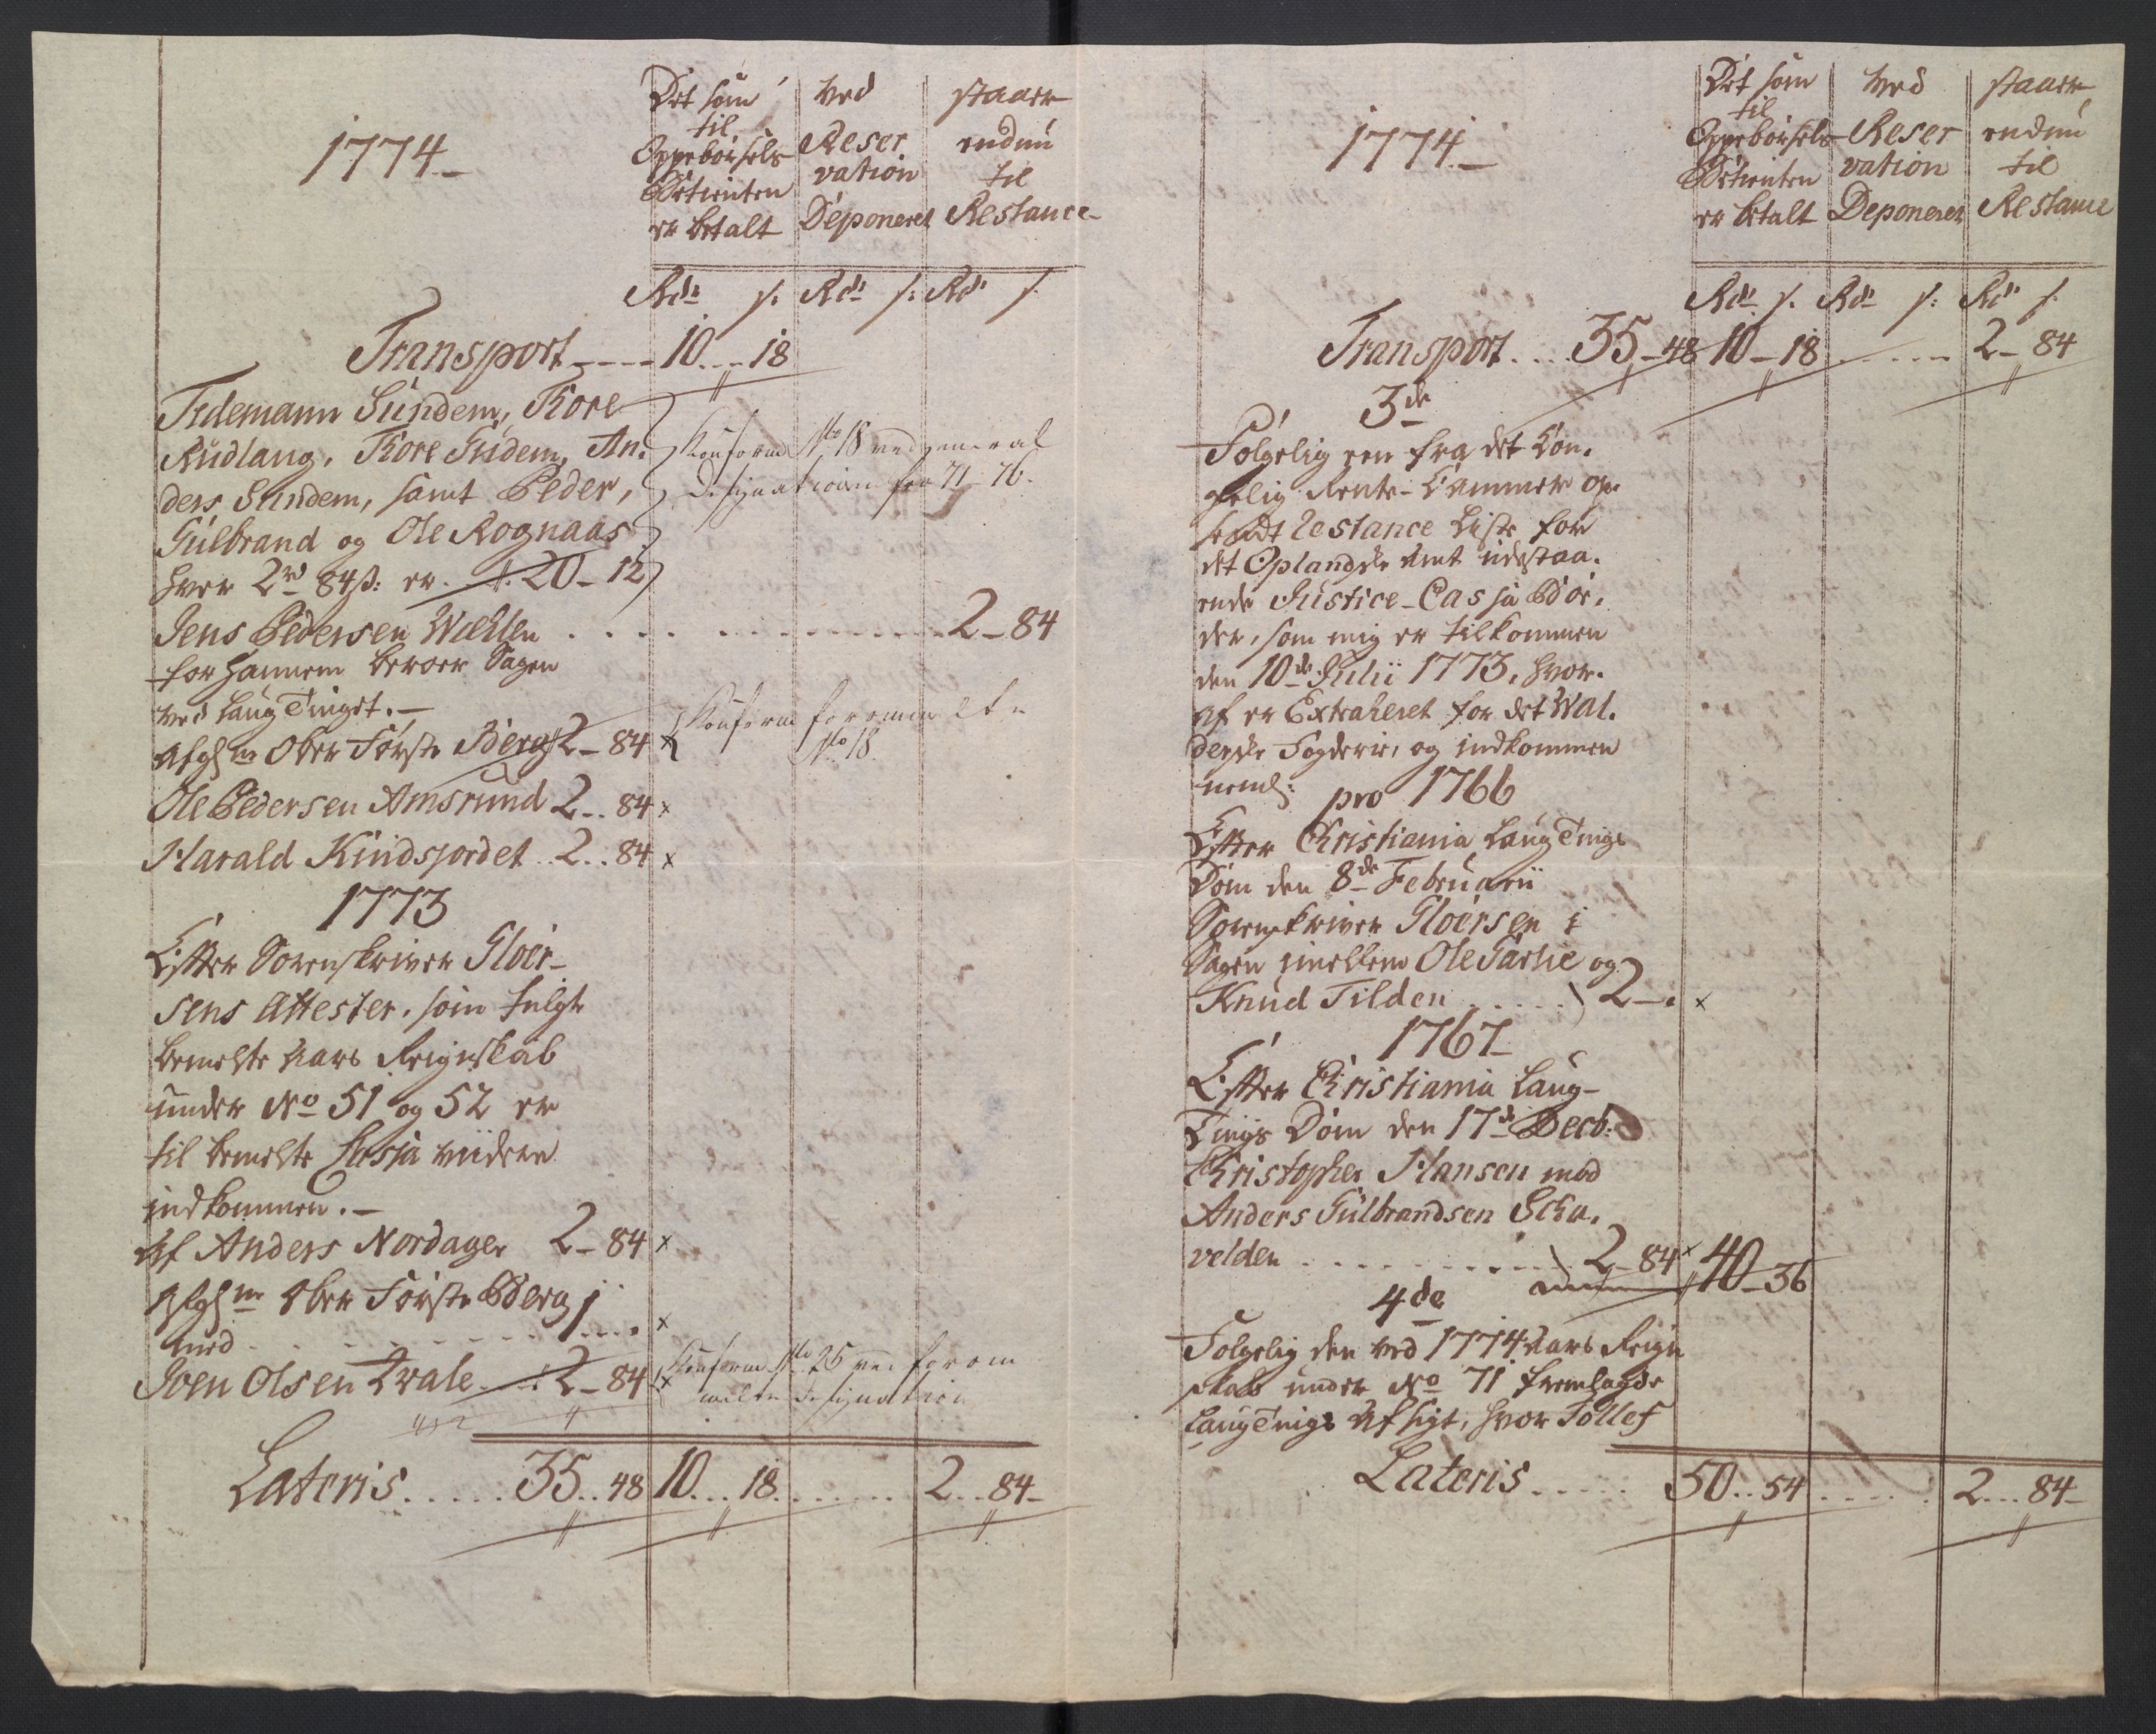 1774
Det som til Oppebørsels Betienten er betalt
Ved Reservation Deponeret
staaer endnu til Restance
Rdr s: Rdr s: Rdr s:
Transport 10 18
Tidemann Sundem, Tore
Rudlang, Tore Sudem, An:
ders Sundem, samt Peder,
Gulbrand og Ole Rognaas
hver 2rd 84s: er 20 - 12
Konform No 18 ved general
Designationen fra 71 - 76.
Jens Pedersen Wæhlen 2 - 84
for hannem beroer Sagen
ved Laug Tinget. -
Afgl: Ober Førster Berg 2 - 84 x
Konform foromelte
No 18.
Ole Pedersen Amsrund 2 .. 84 x
Harald Kindsjordet .. 2 .. 84 x
1773
Efter Sorenskriver Gloer-
sens Attester, som fulgte
bemelte Aars Reignskab
under No 51 og 52 er
til bemelte Cassa viidere
indkommen. -
Af Anders Nordager 2 - 84 x
Ober Førster Berg
med 1 x
Joen Olsen Qvale 2 - 84 x
Konform No 25 ved forom
melte Designation
Lateris 35 .. 48 10 .. 18 2 .. 84 -
1774 -
Det som til Oppebørsels Betienten er betalt
Ved Reservation Deponeret
staaer endnu til Restance
Rdr s. Rdr s: Rdr s.
Transport 35 - 48 10 - 18 2 - 84
3de
Følgelig een fra det Kon.
gelig Rente-Cammer op.
sendt Restance Liste for
det Oplandske Amt udestaa.
ende Justice-Cassa Bøe,
der, som mig er tilkommen
den 10de Julii 1773, hvor.
af er Extraheret for det Wal.
derske Fogderie, og indkommen
neml: pro 1766
Efter Christiania Laug Tings
Dom den 8de Februarii
Sorenskriver Gloersen i
Sagen imellem Ole Garlie og
Knud Tilden 2 - x
1767
Efter Christiania Laug-
Tings Dom den 17de Decb:
Christopher Hansen mod
Anders Gulbrandsen Scha.
velden 2 - 84 x 40 - 36
4de
Følgelig den ved 1774 Aars Reign
skab under No 71 fremlagde
LaugTings Afsigt, hvor Tollef
Lateris 50 .. 54 2 .. 84 -